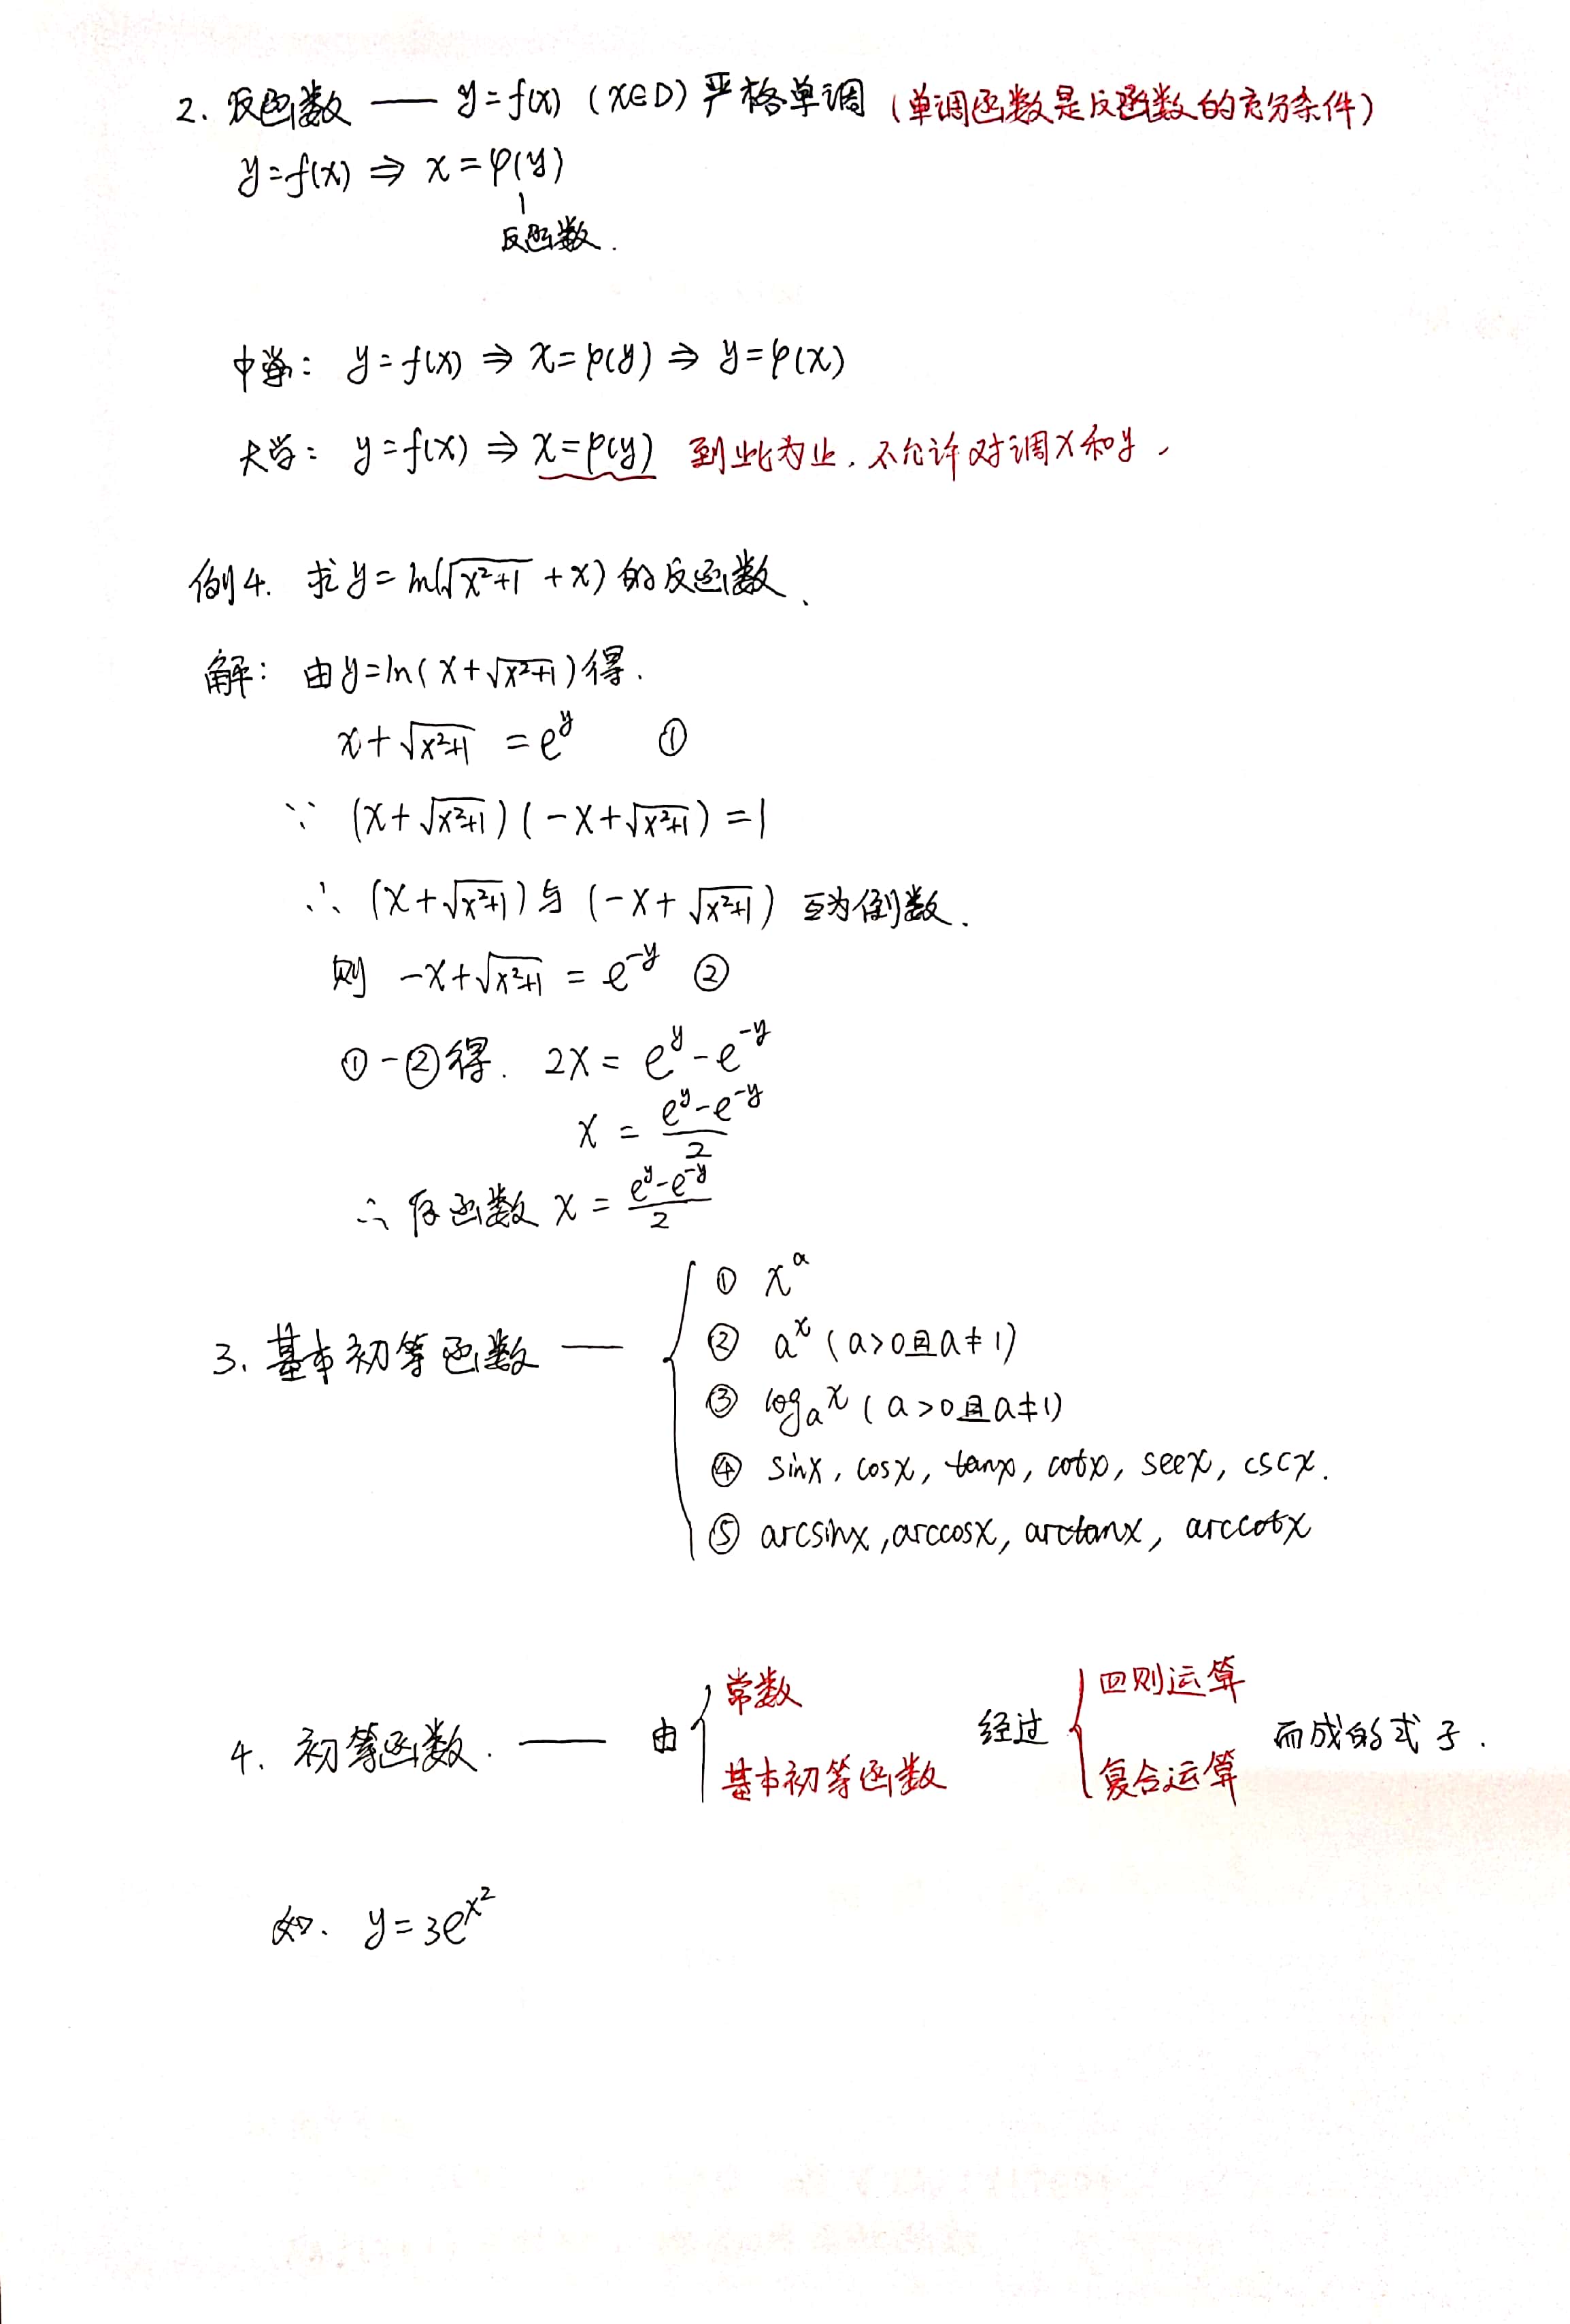 2. 反函数 —— y=f(x) (x∈D) 严格单调 (单调函数是反函数的充分条件)
y=f(x) ⇒ x=φ(y)
反函数.
中学: y=f(x) ⇒ x=φ(y) ⇒ y=φ(x)
大学: y=f(x) ⇒ x=φ(y) 到此为止, 不允许对调x和y,
例4. 求y=ln(√(x²+1) +x) 的反函数、
解: 由y=ln(x+√(x²+1))得.
x+√(x²+1) =e^y ①
∵ (x+√(x²+1))(-x+√(x²+1)) =1
∴ (x+√(x²+1))与(-x+√(x²+1)) 互为倒数.
则 -x+√(x²+1) = e^(-y) ②
①-②得. 2x= e^y-e^(-y)
x = (e^y-e^(-y))/2
∴ 反函数 x = (e^y-e^(-y))/2
3. 基本初等函数 —— { ① x^α
② a^x (a>0且a≠1)
③ log_a x (a>0且a≠1)
④ sinx, cosx, tanx, cotx, secx, cscx.
⑤ arcsinx, arccosx, arctanx, arccotx
4. 初等函数. —— 由 { 常数 基本初等函数 经过 { 四则运算 复合运算 而成的式子.
如. y=3e^(x²)